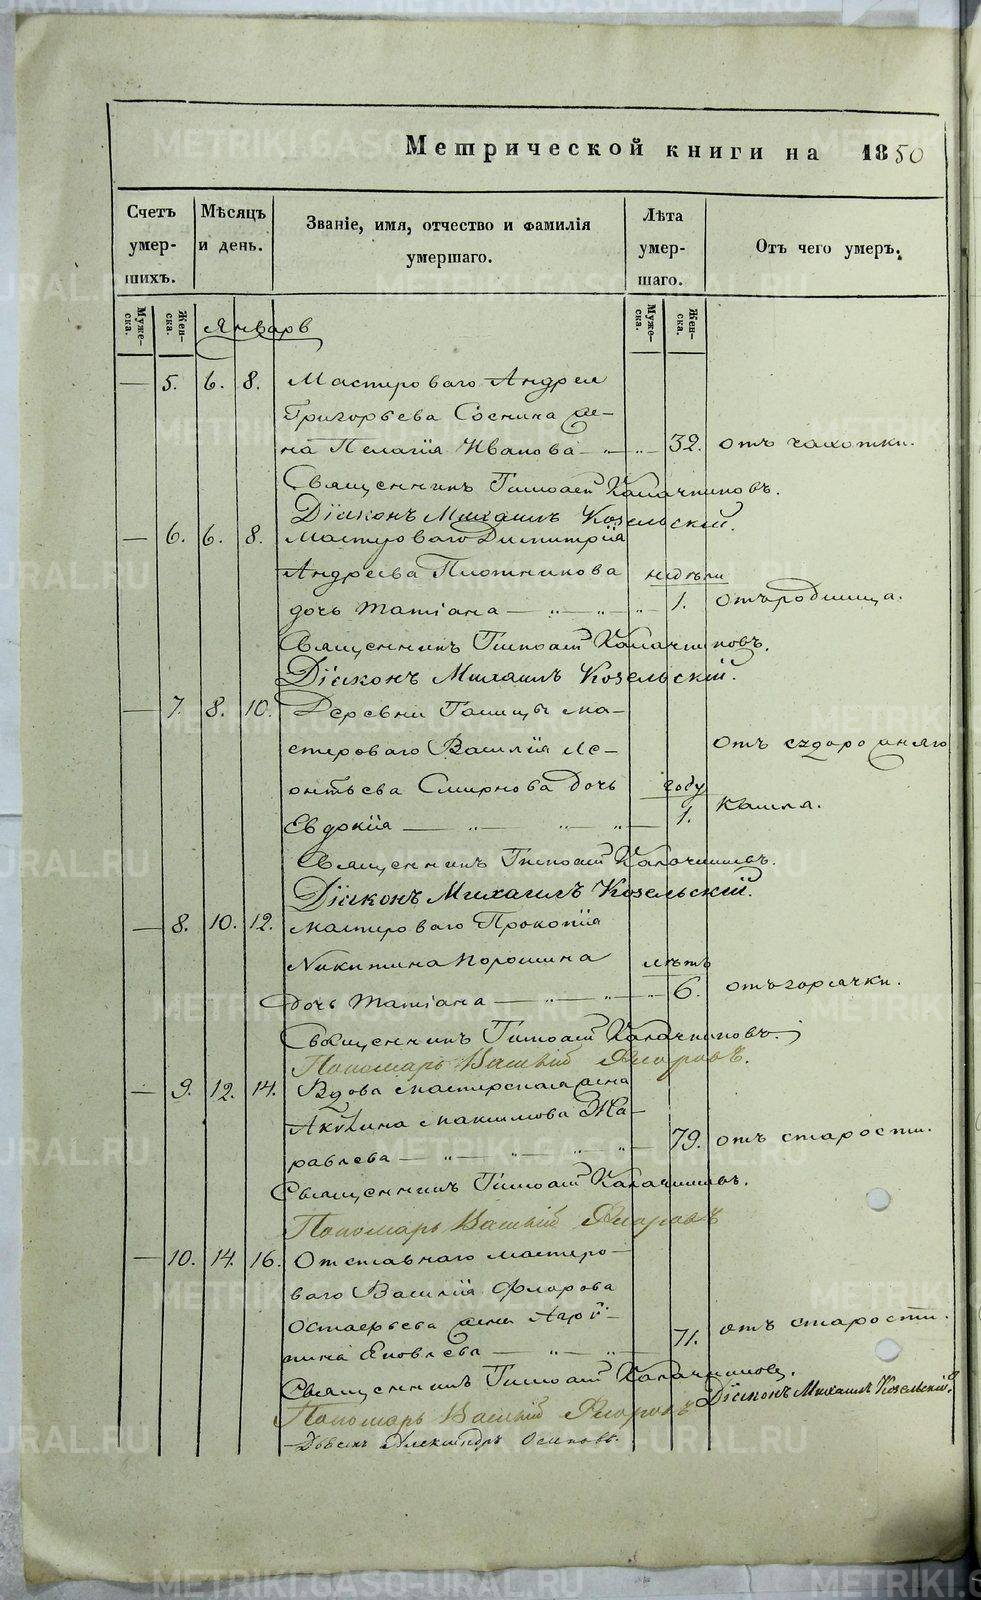 Метрической книги на 1850
Счетъ умер-шихъ.
Мѣсяцъ и день.
Званіе, имя, отчество и фамилія умершаго.
Лѣта умер-шаго.
Отъ чего умеръ.
Муже-ска.
Жен-ска.
Январь
Муже-ска.
Жен-ска.
— 5. 6. 8. Мастероваго Андрея
Григорьева Соснина же-
на Пелагія Иванова 32. отъ чахотки.
Священникъ Калачниковъ.
Діаконъ Михаилъ Козельскій.
— 6. 6. 8. Мастероваго Димитрія
Андреева Плотникова недѣли
дочь Татіана 1. отъ родимца.
Священникъ Калачниковъ.
Діаконъ Михаилъ Козельскій.
— 7. 8. 10. Деревни Галицы ма-
стероваго Василія Ле-
онтьева Смирнова дочь году
Евдокія 1. отъ кашля.
Священникъ Калачниковъ.
Діаконъ Михаилъ Козельскій.
— 8. 10. 12. Мастероваго Прокопія
Никитина Порошина лѣтъ
дочь Татіана 6. отъ горячки.
Священникъ Калачниковъ.
Пономарь Василій Флоровъ.
— 9. 12. 14. Вдова мастерская жена
Акулина Максимова Жу-
равлева 79. отъ старости.
Священникъ Калачниковъ.
Пономарь Василій Флоровъ
— 10. 14. 16. Отставнаго мастеро-
ваго Василія Флорова
жена
Яковлева 71. отъ старости.
Священникъ Калачниковъ.
Діаконъ Михаилъ Козельскій.
Пономарь Василій Флоровъ
Александръ Осиповъ.
METRIKI.GASO-URAL.RU